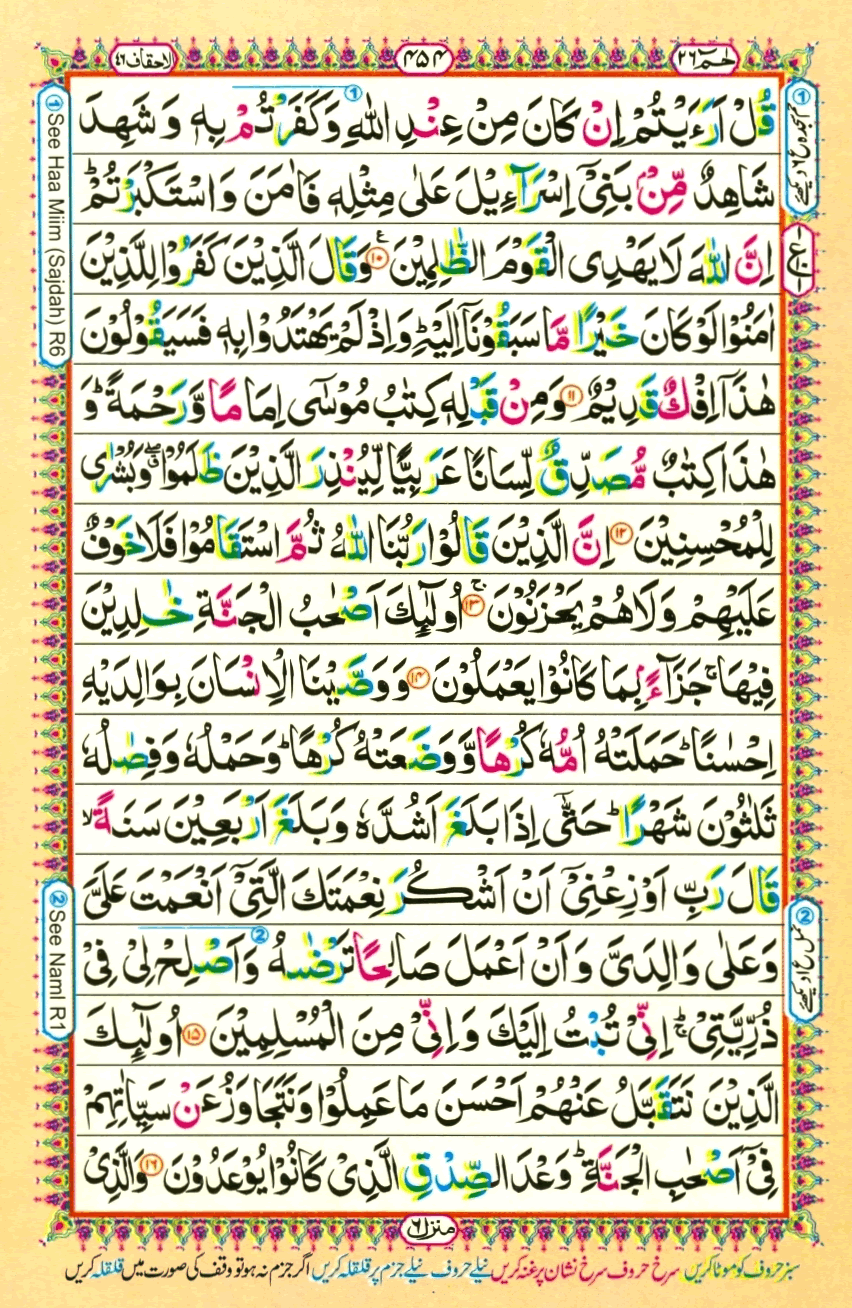 الاحقاف ٤٦
٤٥٤
حٰمٓ ٢٦
قُلْ اَرَءَيْتُمْ اِنْ كَانَ مِنْ عِنْدِ اللّٰهِ وَكَفَرْتُمْ بِهٖ وَشَهِدَ
شَاهِدٌ مِّنْۢ بَنِیْۤ اِسْرَآءِیْلَ عَلٰی مِثْلِهٖ فَاٰمَنَ وَاسْتَكْبَرْتُمْ ؕ
اِنَّ اللّٰهَ لَا یَهْدِی الْقَوْمَ الظّٰلِمِیْنَ ۱۰ وَقَالَ الَّذِیْنَ كَفَرُوْا لِلَّذِیْنَ
اٰمَنُوْا لَوْ كَانَ خَیْرًا مَّا سَبَقُوْنَاۤ اِلَیْهِ ؕ وَاِذْ لَمْ یَهْتَدُوْا بِهٖ فَسَیَقُوْلُوْنَ
هٰذَاۤ اِفْكٌ قَدِیْمٌ ۱۱ وَمِنْ قَبْلِهٖ كِتٰبُ مُوْسٰۤی اِمَامًا وَّرَحْمَةً ؕ وَ
هٰذَا كِتٰبٌ مُّصَدِّقٌ لِّسَانًا عَرَبِیًّا لِّیُنْذِرَ الَّذِیْنَ ظَلَمُوْا ۖۗ وَبُشْرٰی
لِلْمُحْسِنِیْنَ ۱۲ اِنَّ الَّذِیْنَ قَالُوْا رَبُّنَا اللّٰهُ ثُمَّ اسْتَقَامُوْا فَلَا خَوْفٌ
عَلَیْهِمْ وَلَا هُمْ یَحْزَنُوْنَ ۱۳ اُولٰٓىِٕكَ اَصْحٰبُ الْجَنَّةِ خٰلِدِیْنَ
فِیْهَا ۚ جَزَآءًۢ بِمَا كَانُوْا یَعْمَلُوْنَ ۱۴ وَوَصَّیْنَا الْاِنْسَانَ بِوَالِدَیْهِ
اِحْسٰنًا ؕ حَمَلَتْهُ اُمُّهٗ كُرْهًا وَّوَضَعَتْهُ كُرْهًا ؕ وَحَمْلُهٗ وَفِصٰلُهٗ
ثَلٰثُوْنَ شَهْرًا ؕ حَتّٰۤی اِذَا بَلَغَ اَشُدَّهٗ وَبَلَغَ اَرْبَعِیْنَ سَنَةً ۙ
قَالَ رَبِّ اَوْزِعْنِیْۤ اَنْ اَشْكُرَ نِعْمَتَكَ الَّتِیْۤ اَنْعَمْتَ عَلَیَّ
وَعَلٰی وَالِدَیَّ وَاَنْ اَعْمَلَ صَالِحًا تَرْضٰىهُ وَاَصْلِحْ لِیْ فِیْ
ذُرِّیَّتِیْ ؕۚ اِنِّیْ تُبْتُ اِلَیْكَ وَاِنِّیْ مِنَ الْمُسْلِمِیْنَ ۱۵ اُولٰٓىِٕكَ
الَّذِیْنَ نَتَقَبَّلُ عَنْهُمْ اَحْسَنَ مَا عَمِلُوْا وَنَتَجَاوَزُ عَنْ سَیِّاٰتِهِمْ
فِیْۤ اَصْحٰبِ الْجَنَّةِ ؕ وَعْدَ الصِّدْقِ الَّذِیْ كَانُوْا یُوْعَدُوْنَ ۱۶ وَالَّذِیْ
① See Haa Miim (Sajdah) R6
② See Naml R1
منزل ٦
سبز حروف کو موٹا کریں سرخ حروف سرخ نشان پر غنہ کریں نیلے حروف نیلے جزم پر قلقلہ کریں اگر جزم نہ ہو تو وقف کی صورت میں قلقلہ کریں